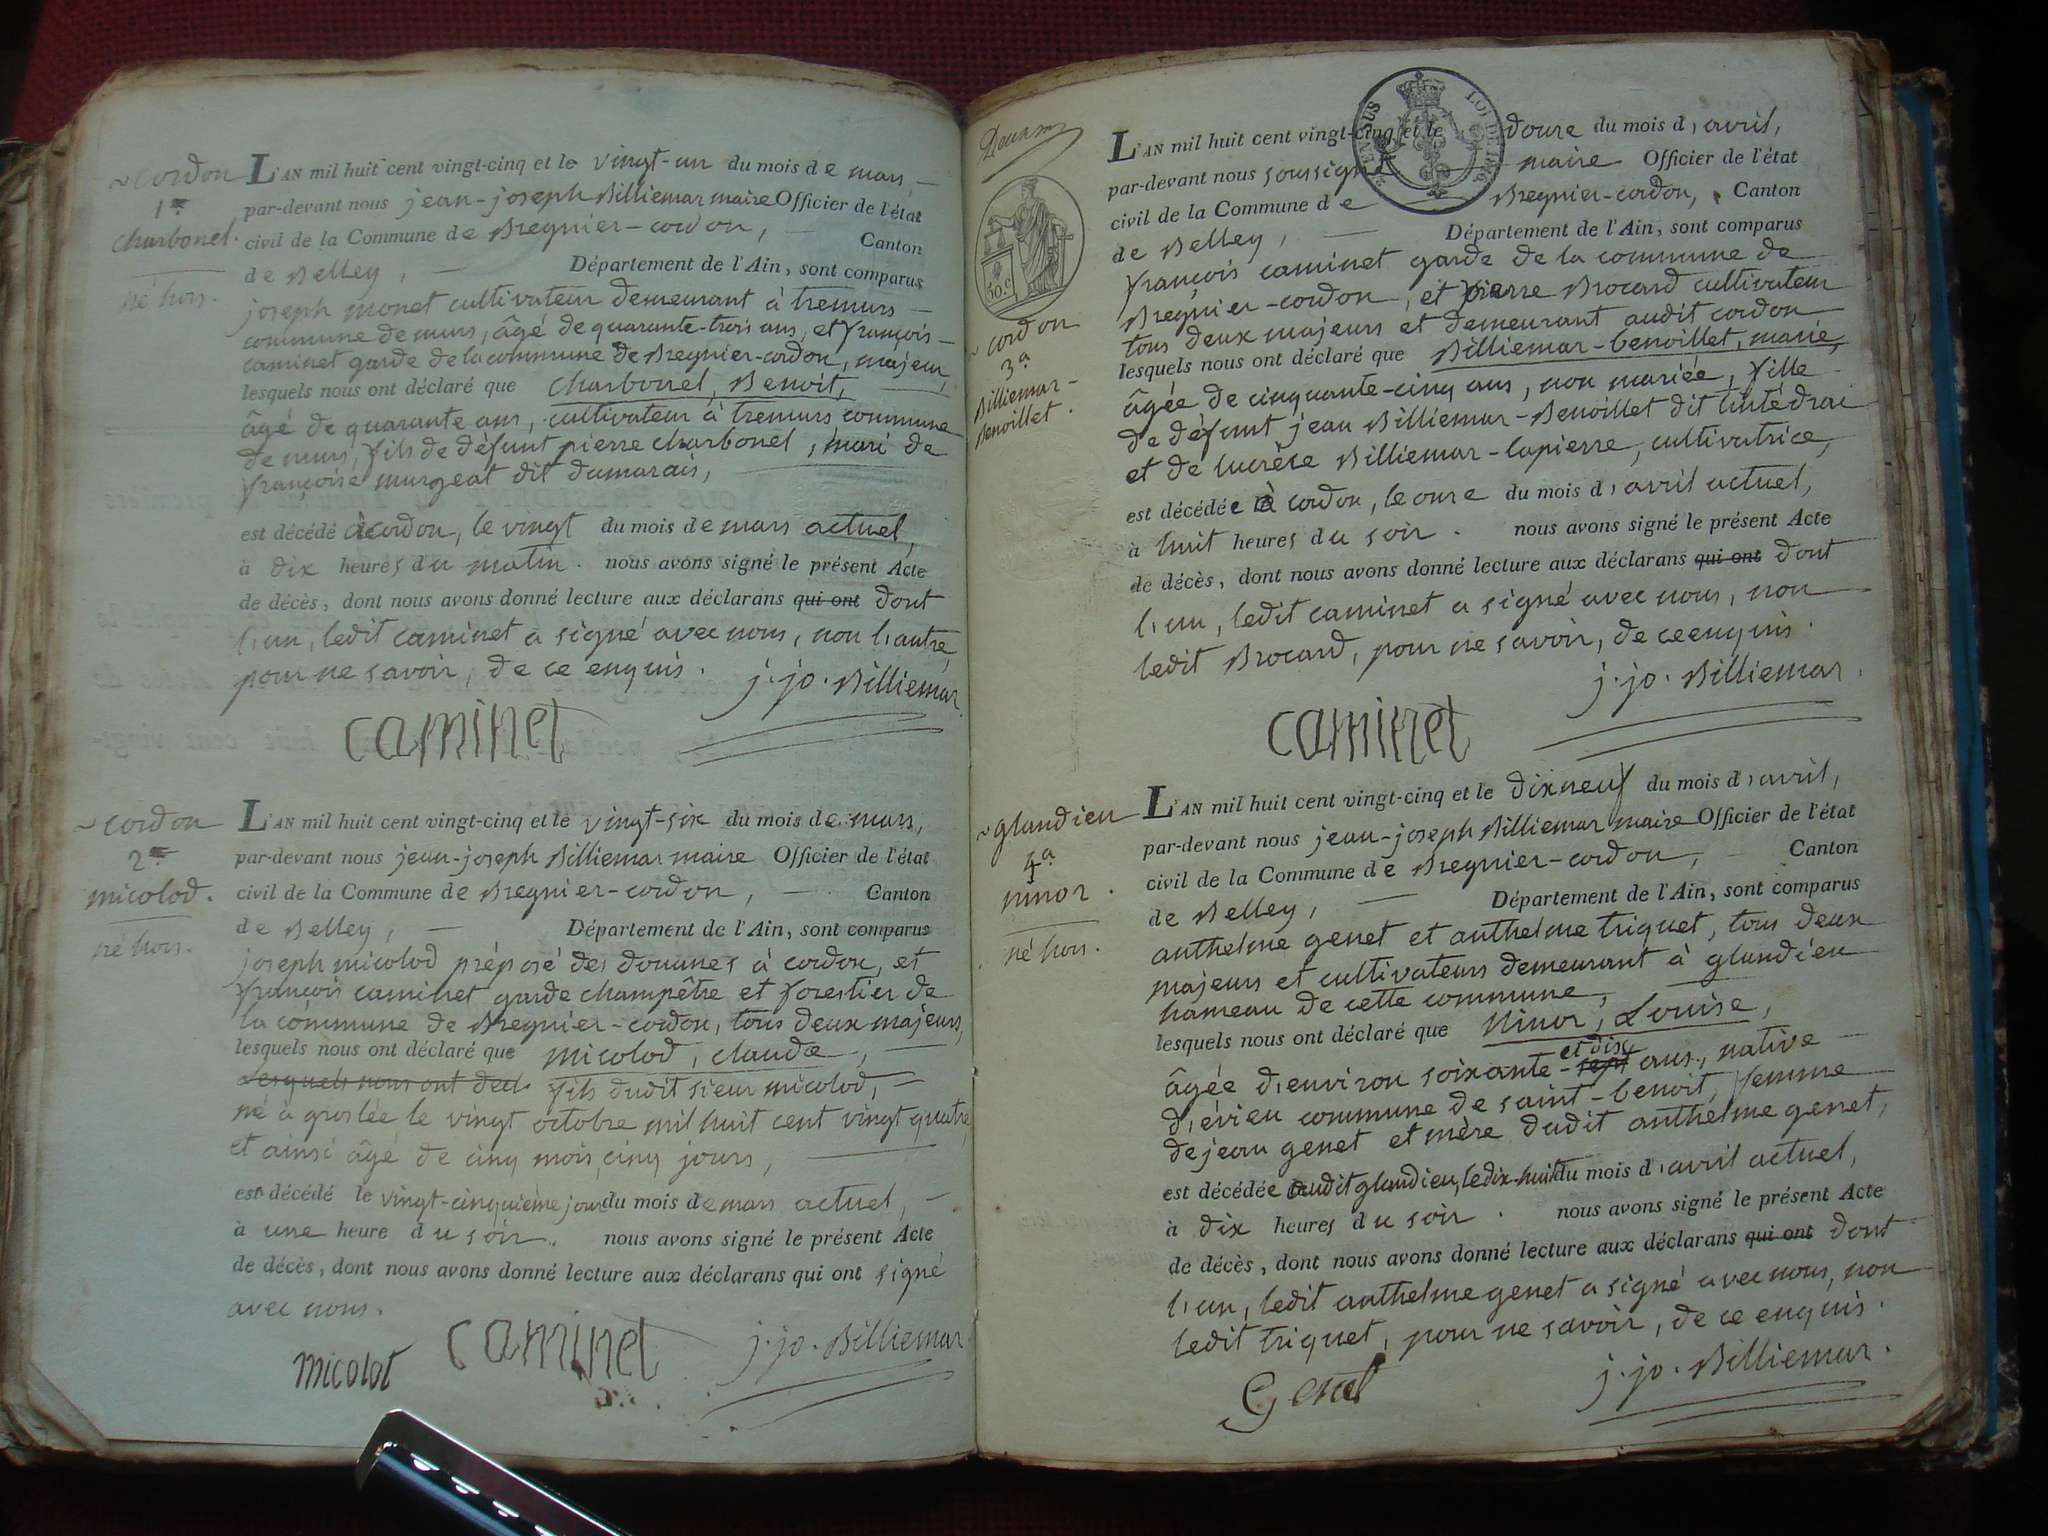 ~ cordon
1er
charbonel.
né hors.
L'AN mil huit cent vingt-cinq et le vingt-un du mois de mars,
par-devant nous jean-joseph Billiemar maire Officier de l'état
civil de la Commune de Bregnier-cordon, Canton
de Belley, Département de l'Ain, sont comparus
joseph monet cultivateur demeurant à tremurs
commune de murs, âgé de quarante-trois ans, et françois
caminet garde de la commune de Bregnier-cordon, majeur,
lesquels nous ont déclaré que charbonel, Benoit,
âgé de quarante ans, cultivateur à tremurs commune
de murs, fils de défunt pierre charbonel, mari de
françoise murgeat dit dumarais,
est décédé à cordon, le vingt du mois de mars actuel,
à dix heures du matin. nous avons signé le présent Acte
de décès, dont nous avons donné lecture aux déclarans qui ont dont
l'un, ledit caminet a signé avec nous, non l'autre,
pour ne savoir, de ce enquis. j. jo. Billiemar
caminet
~ cordon
2e
micolod.
né hors.
L'AN mil huit cent vingt-cinq et le vingt-six du mois de mars,
par-devant nous jean-joseph Billiemar maire Officier de l'état
civil de la Commune de Bregnier-cordon, Canton
de Belley, Département de l'Ain, sont comparus
joseph micolod préposé des douanes à cordon, et
françois caminet garde champêtre et forestier de
la commune de Bregnier-cordon, tous deux majeurs,
lesquels nous ont déclaré que micolod, claude,
Lesquels nous ont decl. fils dudit sieur micolod,
né à groslée le vingt octobre mil huit cent vingt quatre,
et ainsi âgé de cinq mois, cinq jours,
est décédé le vingt-cinquième jour du mois de mars actuel,
à une heure du soir. nous avons signé le présent Acte
de décès, dont nous avons donné lecture aux déclarans qui ont signé
avec nous.
micolot caminet j. jo. Billiemar
50.c
~ cordon
3a
Billiemar-
Benoillet.
L'AN mil huit cent vingt-cinq et le douze du mois d'avril,
par-devant nous soussigné maire Officier de l'état
civil de la Commune de Bregnier-cordon, Canton
de Belley, Département de l'Ain, sont comparus
françois caminet garde de la commune de
Bregnier-cordon, et pierre Brocard cultivateur
tous deux majeurs et demeurant audit cordon
lesquels nous ont déclaré que Billiemar-benoillet, marie,
âgée de cinquante-cinq ans, non mariée, fille
de défunt jean Billiemar-Benoillet dit
et de lucrèce Billiemar-lapierre, cultivatrice,
est décédée à cordon, le onze du mois d'avril actuel,
à huit heures du soir. nous avons signé le présent Acte
de décès, dont nous avons donné lecture aux déclarans qui ont dont
l'un, ledit caminet a signé avec nous, non
ledit Brocard, pour ne savoir, de ce enquis.
j. jo. Billiemar.
caminet
~ glandieu
4a
ninor.
né hors.
L'AN mil huit cent vingt-cinq et le dixneuf du mois d'avril,
par-devant nous jean-joseph Billiemar maire Officier de l'état
civil de la Commune de Bregnier-cordon, Canton
de Belley, Département de l'Ain, sont comparus
anthelme genet et anthelme triquet, tous deux
majeurs et cultivateurs demeurant à glandieu
hameau de cette commune,
lesquels nous ont déclaré que Ninor, Louise,
et dix
âgée d'environ soixante-sept ans, native
d'évieu commune de saint-benoit, femme
de jean genet et mère dudit anthelme genet,
est décédée audit glandieu, le dix-huit du mois d'avril actuel,
à dix heures du soir. nous avons signé le présent Acte
de décès, dont nous avons donné lecture aux déclarans qui ont dont
l'un, ledit anthelme genet a signé avec nous, non
ledit triquet, pour ne savoir, de ce enquis.
j. jo. Billiemar.
Genet